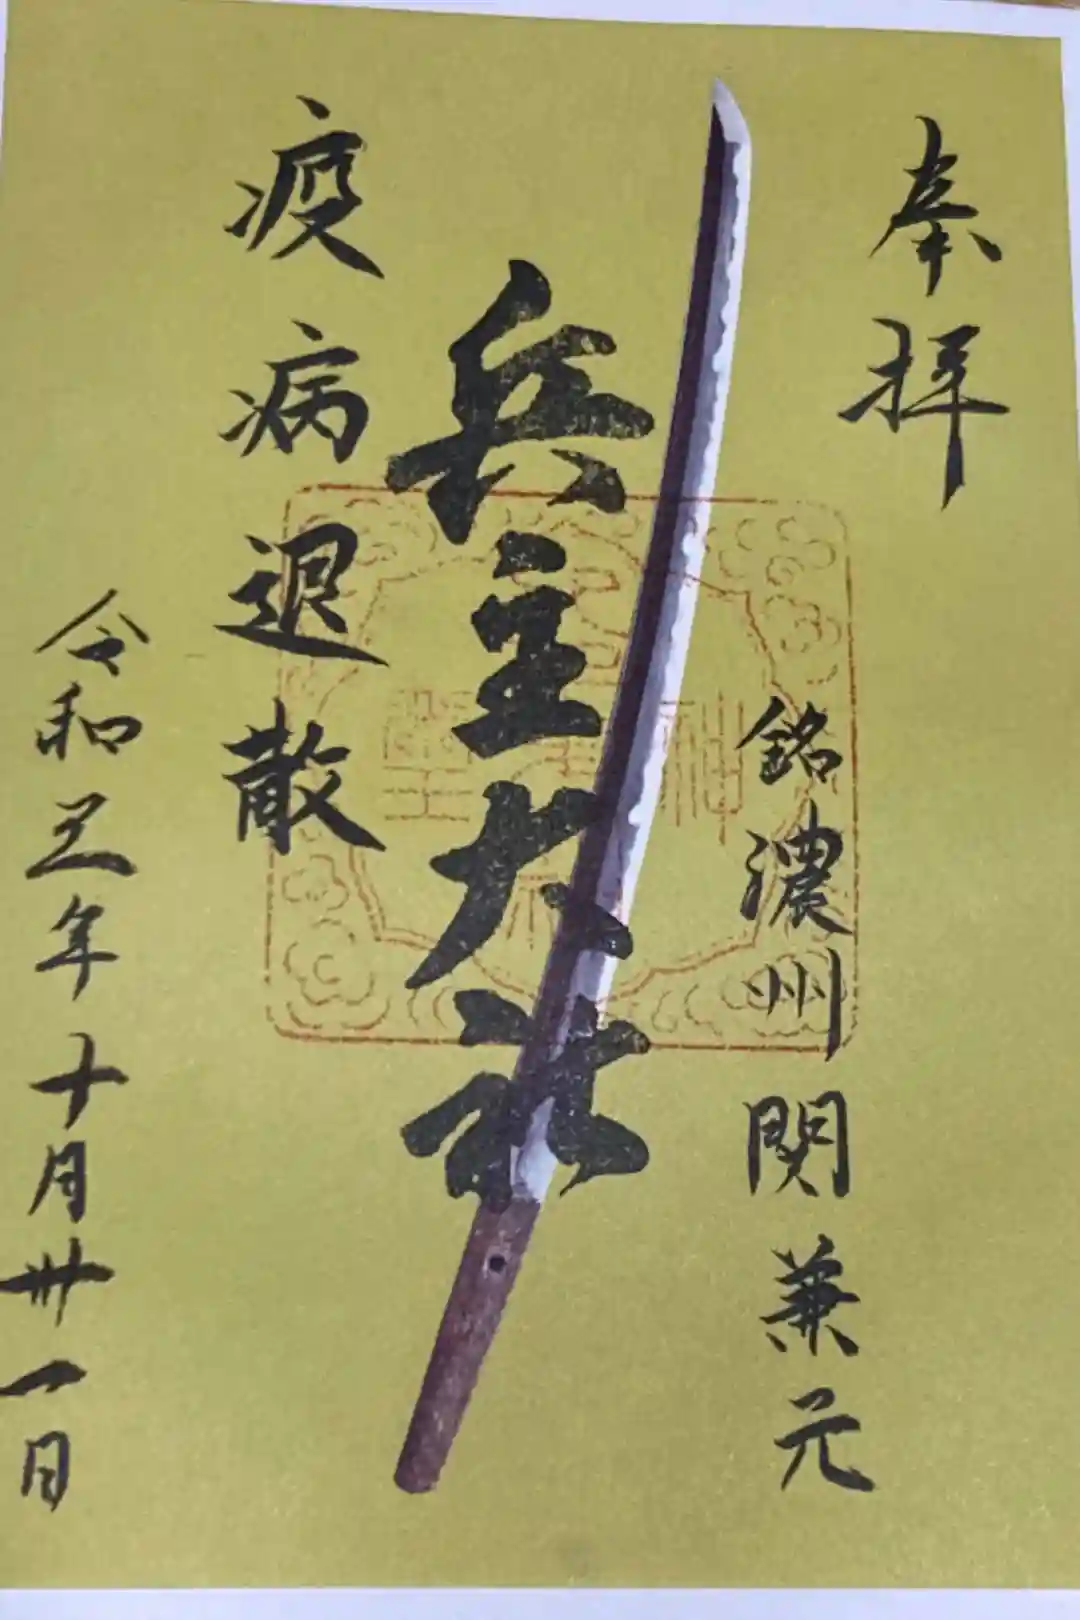 奉拝
銘濃州関兼元
兵主大社
疫病退散
令和三年十月卅一日